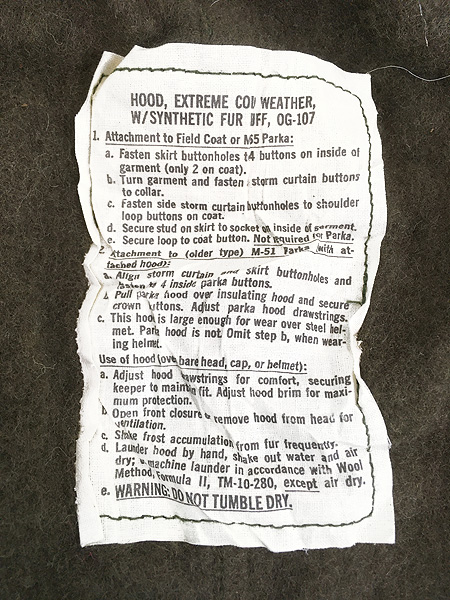 HOOD, EXTREME COL WEATHER,
W/SYNTHETIC FUR FF, OG-107
1. Attachment to Field Coat or M65 Parka:
a. Fasten skirt buttonholes t4 buttons on inside of
garment (only 2 on coat).
b. Turn garment and fasten storm curtain buttons
to collar.
c. Fasten side storm curtain buttonholes to shoulder
loop buttons on coat.
d. Secure stud on skirt to socket on inside of garment.
e. Secure loop to coat button. Not Rquired for Parka.
2. Attachment to (older type) M-51 Parka (with at-
tached hood):
a. Align storm curtain and skirt buttonholes and
fasten 4 inside parka buttons.
b. Pull parka hood over insulating hood and secure
crown uttons. Adjust parka hood drawstrings.
c. This hood is large enough for wear over steel hel-
met. Park hood is not. Omit step b, when wear-
ing helmet.
Use of hood (ove bare head, cap, or helmet):
a. Adjust hood awstrings for comfort, securing
keeper to maintain fit. Adjust hood brim for maxi-
mum protection.
b Open front closure remove hood from head for
ventilation.
c. Shake frost accumulation from fur frequently.
d. Launder hood by hand, shake out water and air
dry; machine launder in accordance with Wool
Method, Formula II, TM-10-280, except air dry.
e. WARNING: DO NOT TUMBLE DRY.